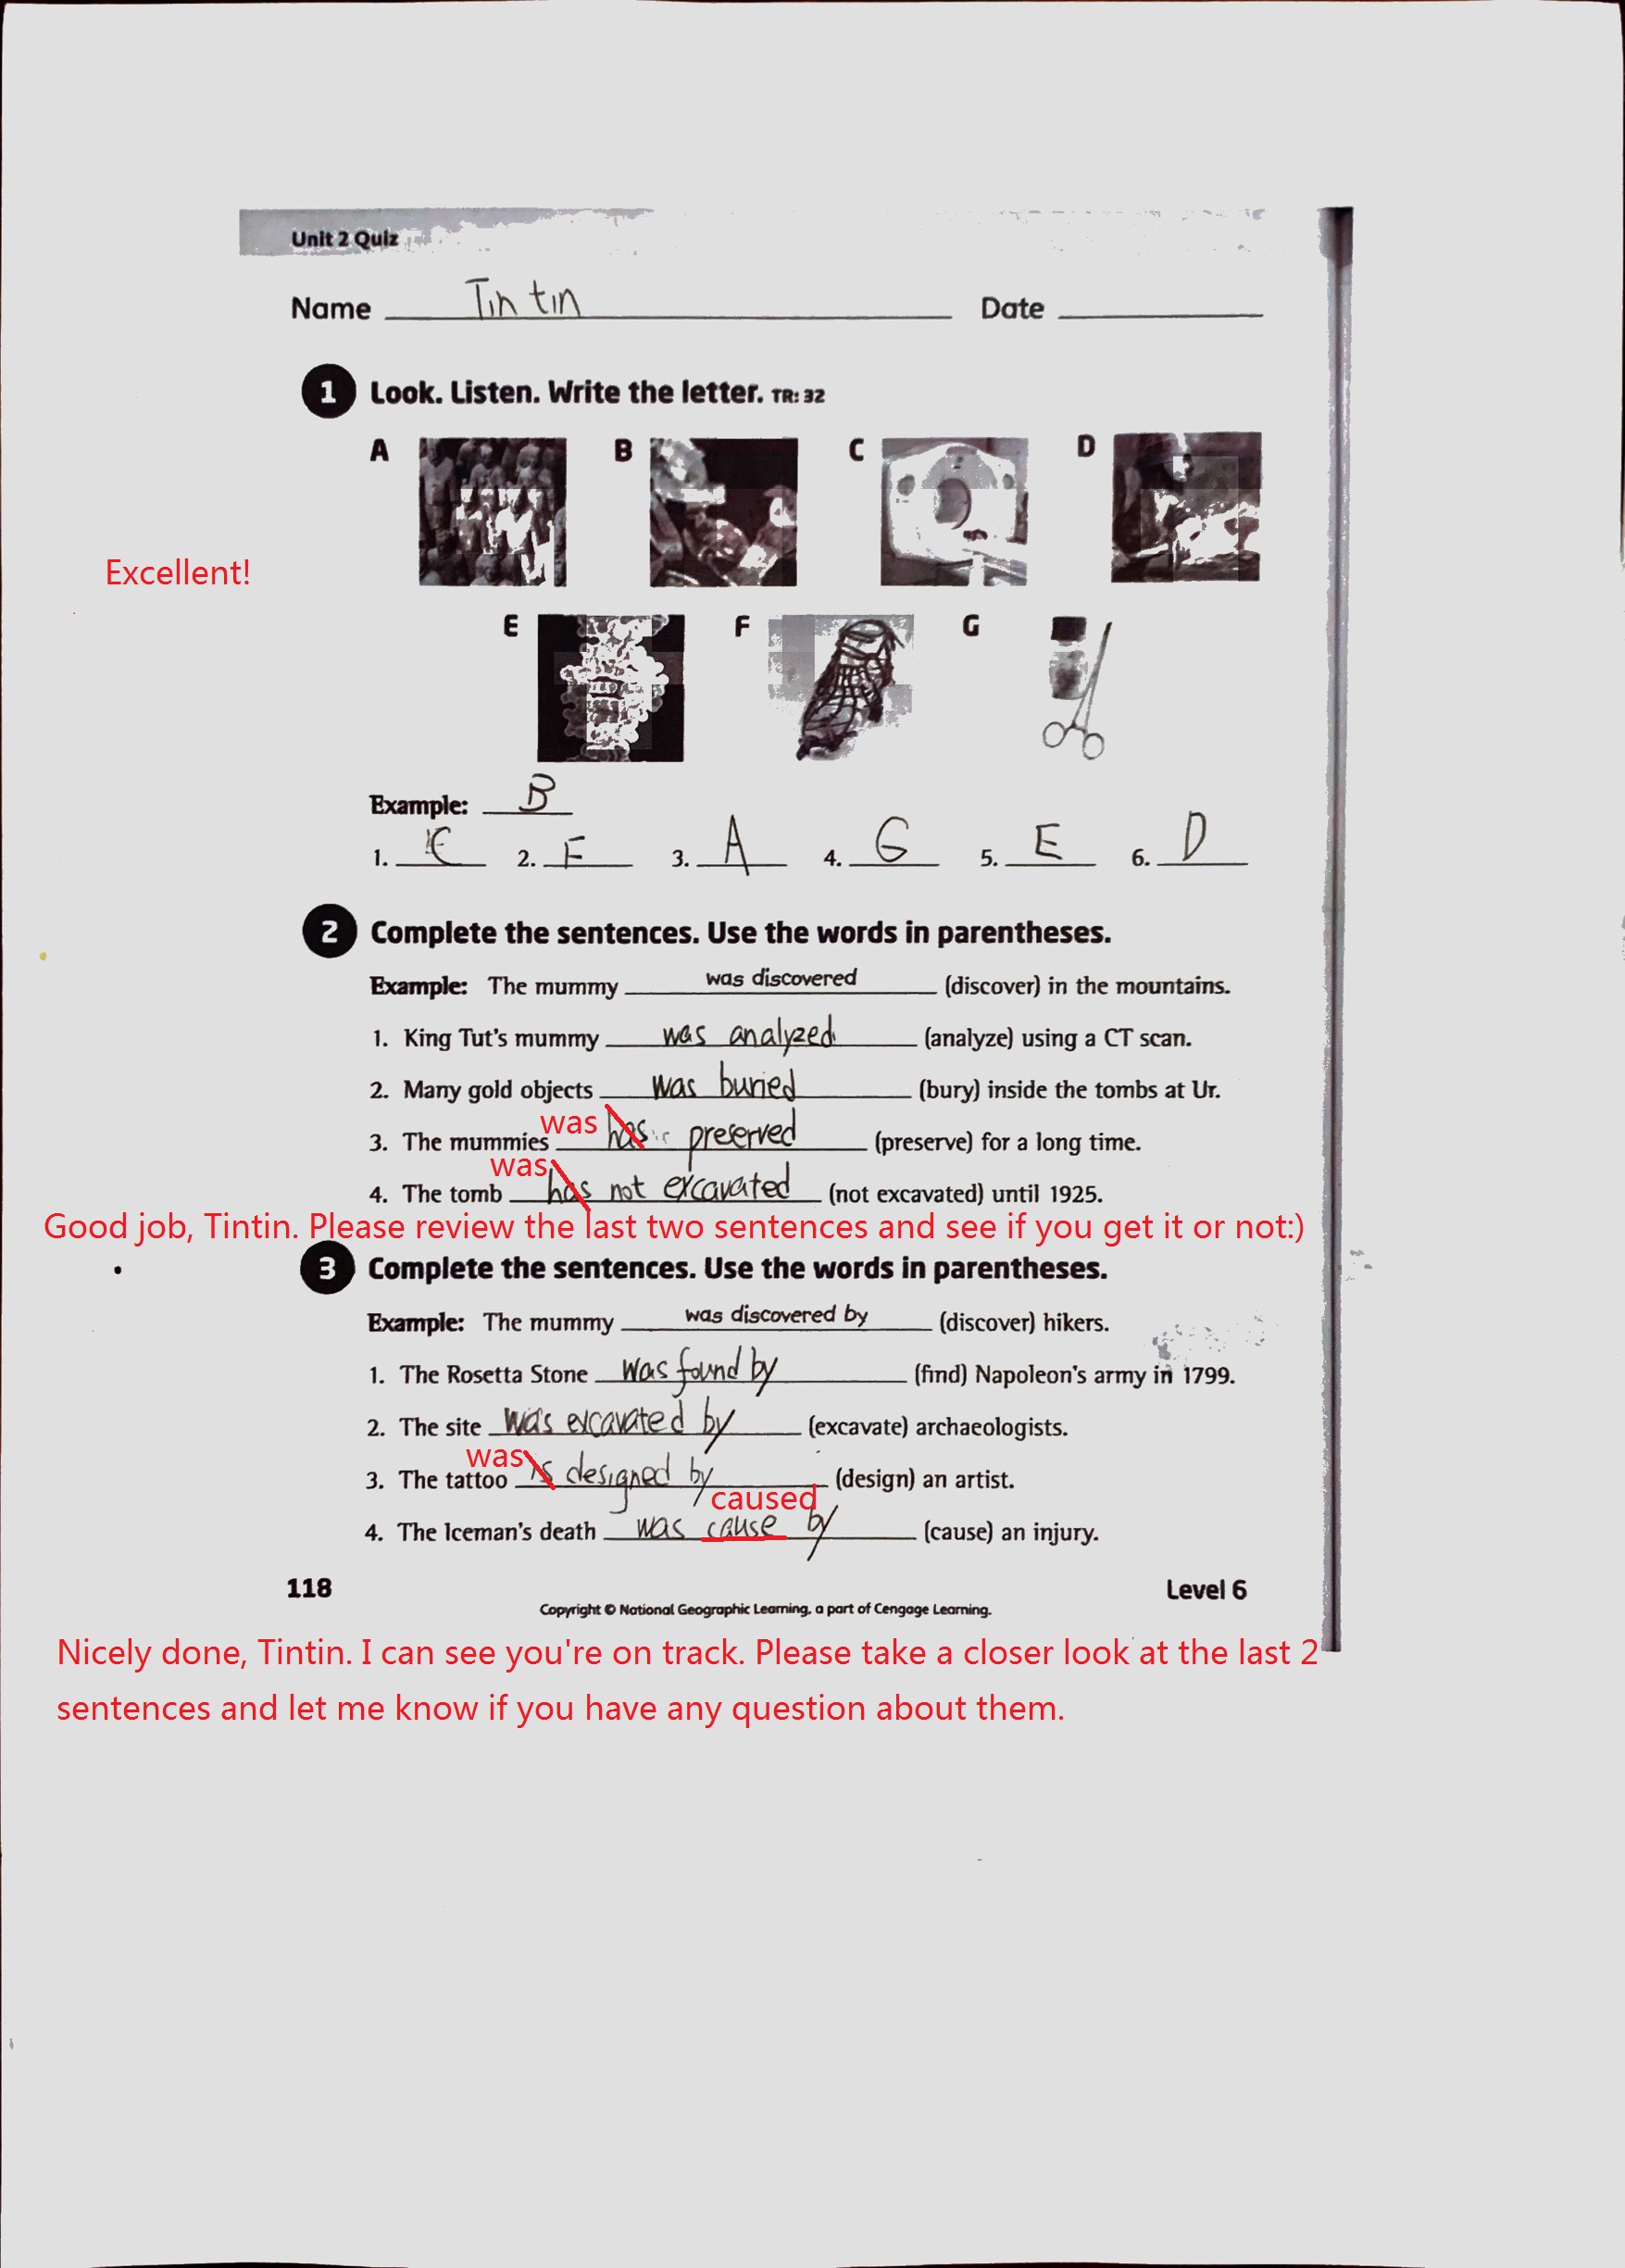 Unit 2 Quiz
Name Tintin Date
1 Look. Listen. Write the letter. TR: 32
A B C D
Excellent!
E F G
Example: B
1. C 2. F 3. A 4. G 5. E 6. D
2 Complete the sentences. Use the words in parentheses.
Example: The mummy was discovered (discover) in the mountains.
1. King Tut's mummy was analyzed (analyze) using a CT scan.
2. Many gold objects was buried (bury) inside the tombs at Ur.
was
3. The mummies has preserved (preserve) for a long time.
was
4. The tomb has not excavated (not excavated) until 1925.
Good job, Tintin. Please review the last two sentences and see if you get it or not:)
3 Complete the sentences. Use the words in parentheses.
Example: The mummy was discovered by (discover) hikers.
1. The Rosetta Stone was found by (find) Napoleon's army in 1799.
2. The site was excavated by (excavate) archaeologists.
was
3. The tattoo is designed by (design) an artist.
caused
4. The Iceman's death was cause by (cause) an injury.
118 Level 6
Copyright © National Geographic Learning, a part of Cengage Learning.
Nicely done, Tintin. I can see you're on track. Please take a closer look at the last 2
sentences and let me know if you have any question about them.